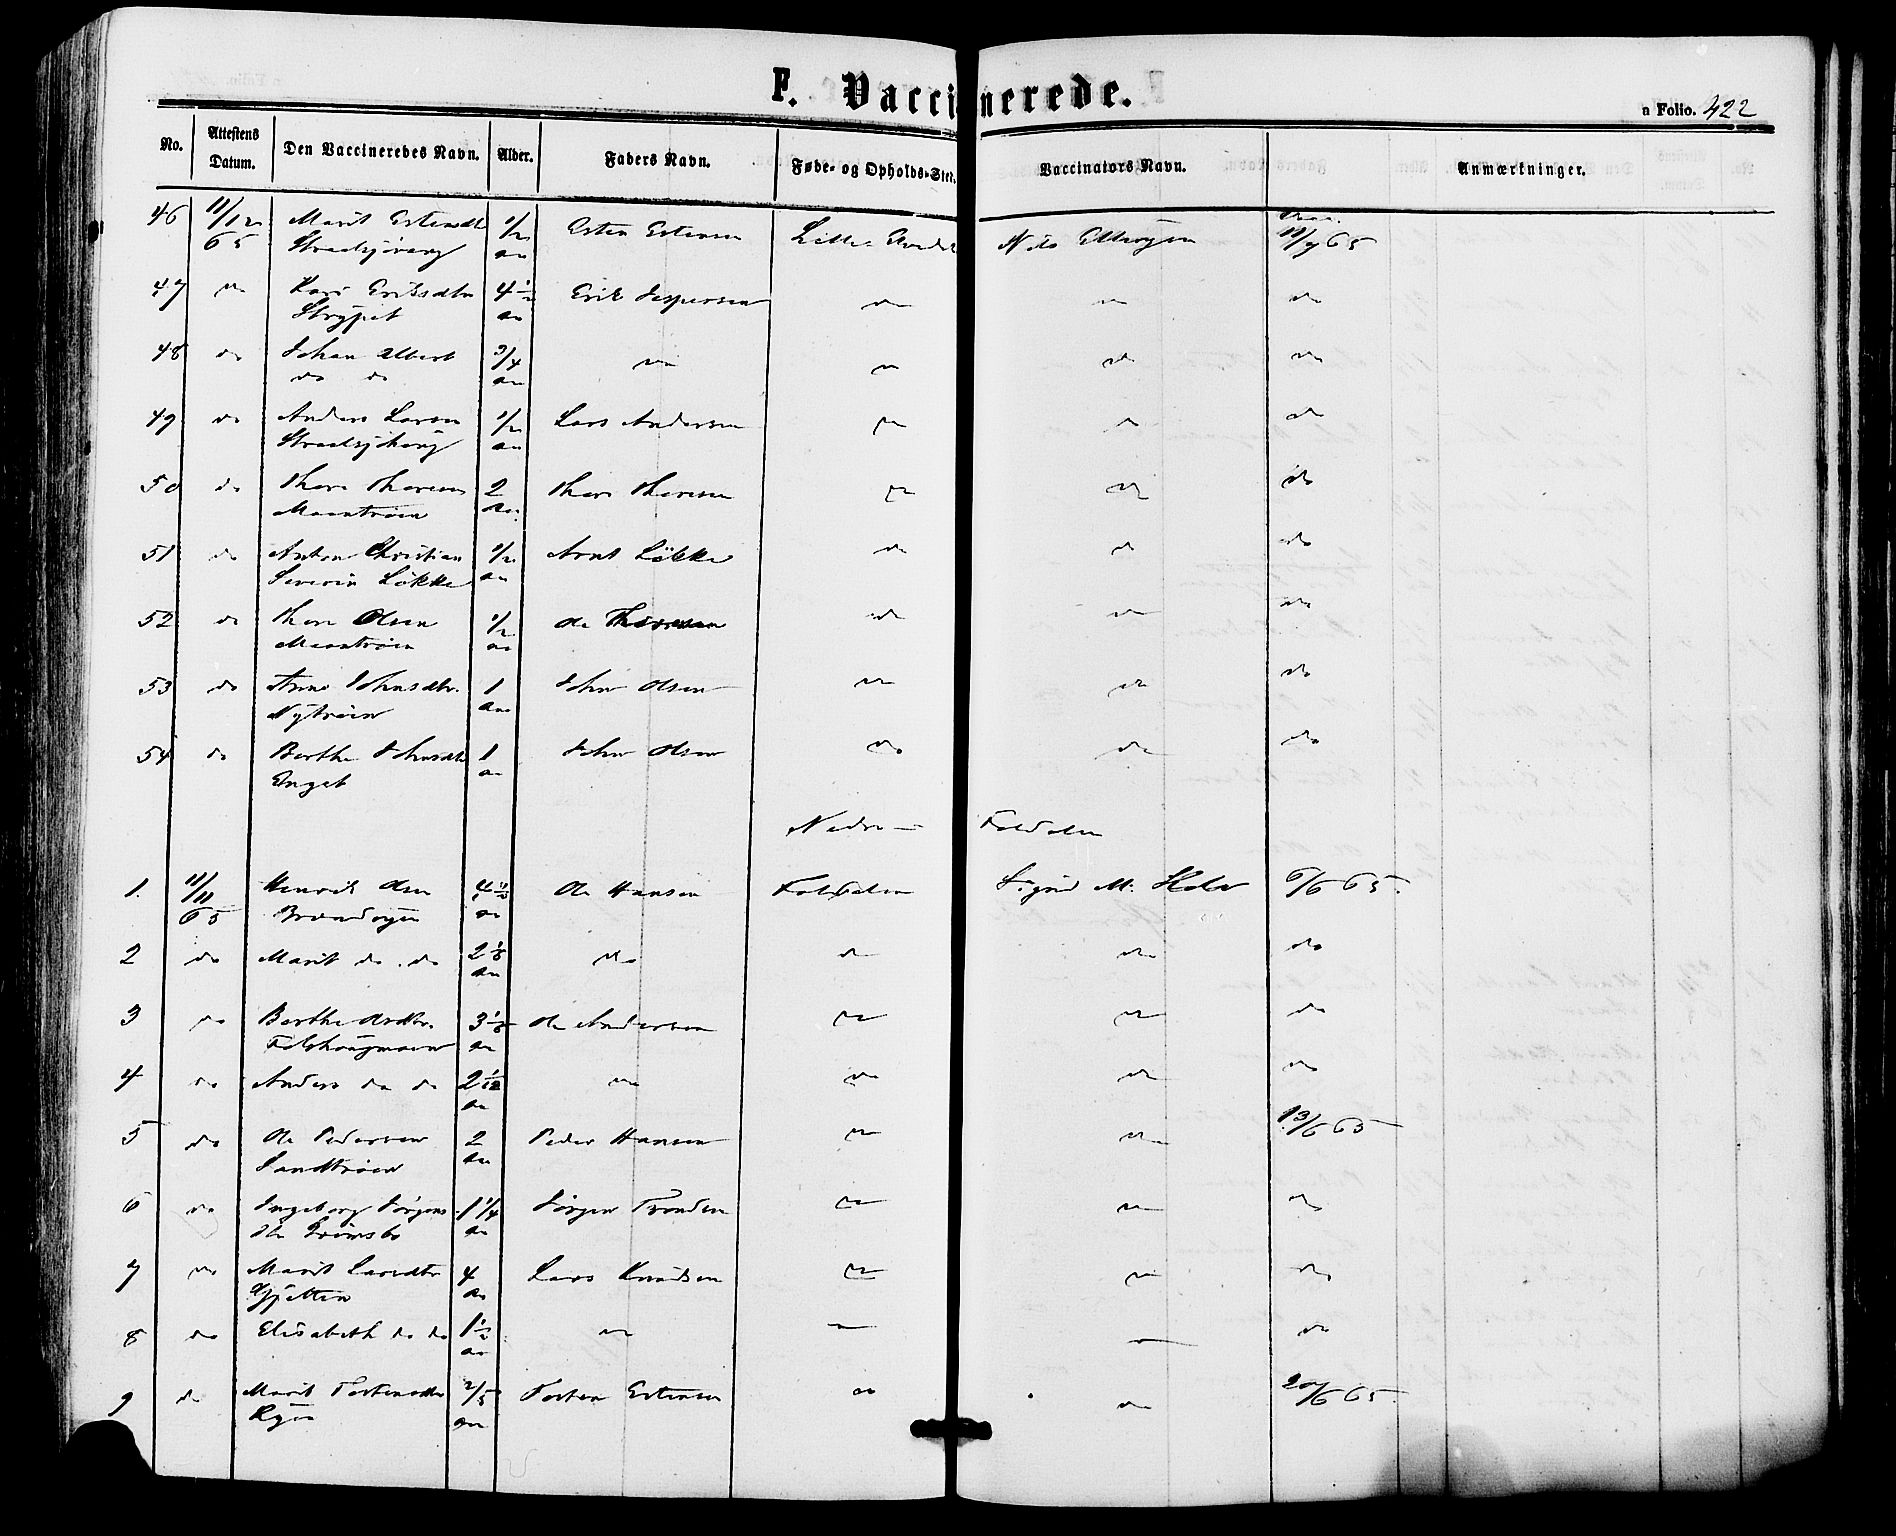 F. Vaccinerede.
a Folio. 422
No. Attestens Datum. Den Vaccineredes Navn. Alder. Faders Navn. Føde- og Opholds-Sted. Vaccinators Navn. Anmærkninger.
46 11/12 65 Marit Estensdtr 1/2 Esten Estensen Lille Nils 11/7 65
aar
47 do Kari Eriksdtr 4 1/2 Erik Jespersen do do do
Strypet aar
48 do Johan Albert 3/4 do do do do
do do aar
49 do Anders Larsen 1/2 Lars Andersen do do do
aar
50 do Thore Thoresen 2 Thore Thoresen do do do
Moentrøen aar
51 do Anton Christian 1/2 Arnt Løkke do do do
Severin Løkke aar
52 do Thore Olsen 1/2 Ole Thoresen do do do
Moentrøen aar
53 do Anne Johnsdtr. 1 John Olsen do do do
Nytrøen aar
54 do Berthe Johnsdtr 1 John Olsen do do do
Enget aar
Nedre Foldalen
1. 11/11 65 Henrik Olsen 4 1/2 Ole Hansen Foldalen Sigrid M. 6/6 65.
Brændøyen aar
2 do Marit do do 2 1/8 do do do do
aar
3 do Berthe Olsdtr. 3 1/8 Ole Andersen do do do
aar
4 do Anders do do 2 1/12 do do do do
aar
5 do Ole Pedersen 2 Peder Hansen do do 13/6 65
Sandtrøen aar
6 do Ingeborg Jørgens 1 1/4 Jørgen Tronsen do do do
dtr Grimsbo aar
7 do Marit Larsdtr 4 Lars Knudsen do do do
aar
8 do Elisabeth do do 1 1/2 do do do do
aar
9 do Marit Torstensdtr 2/5 Torsten Estensen do do 20/6 65.
aar